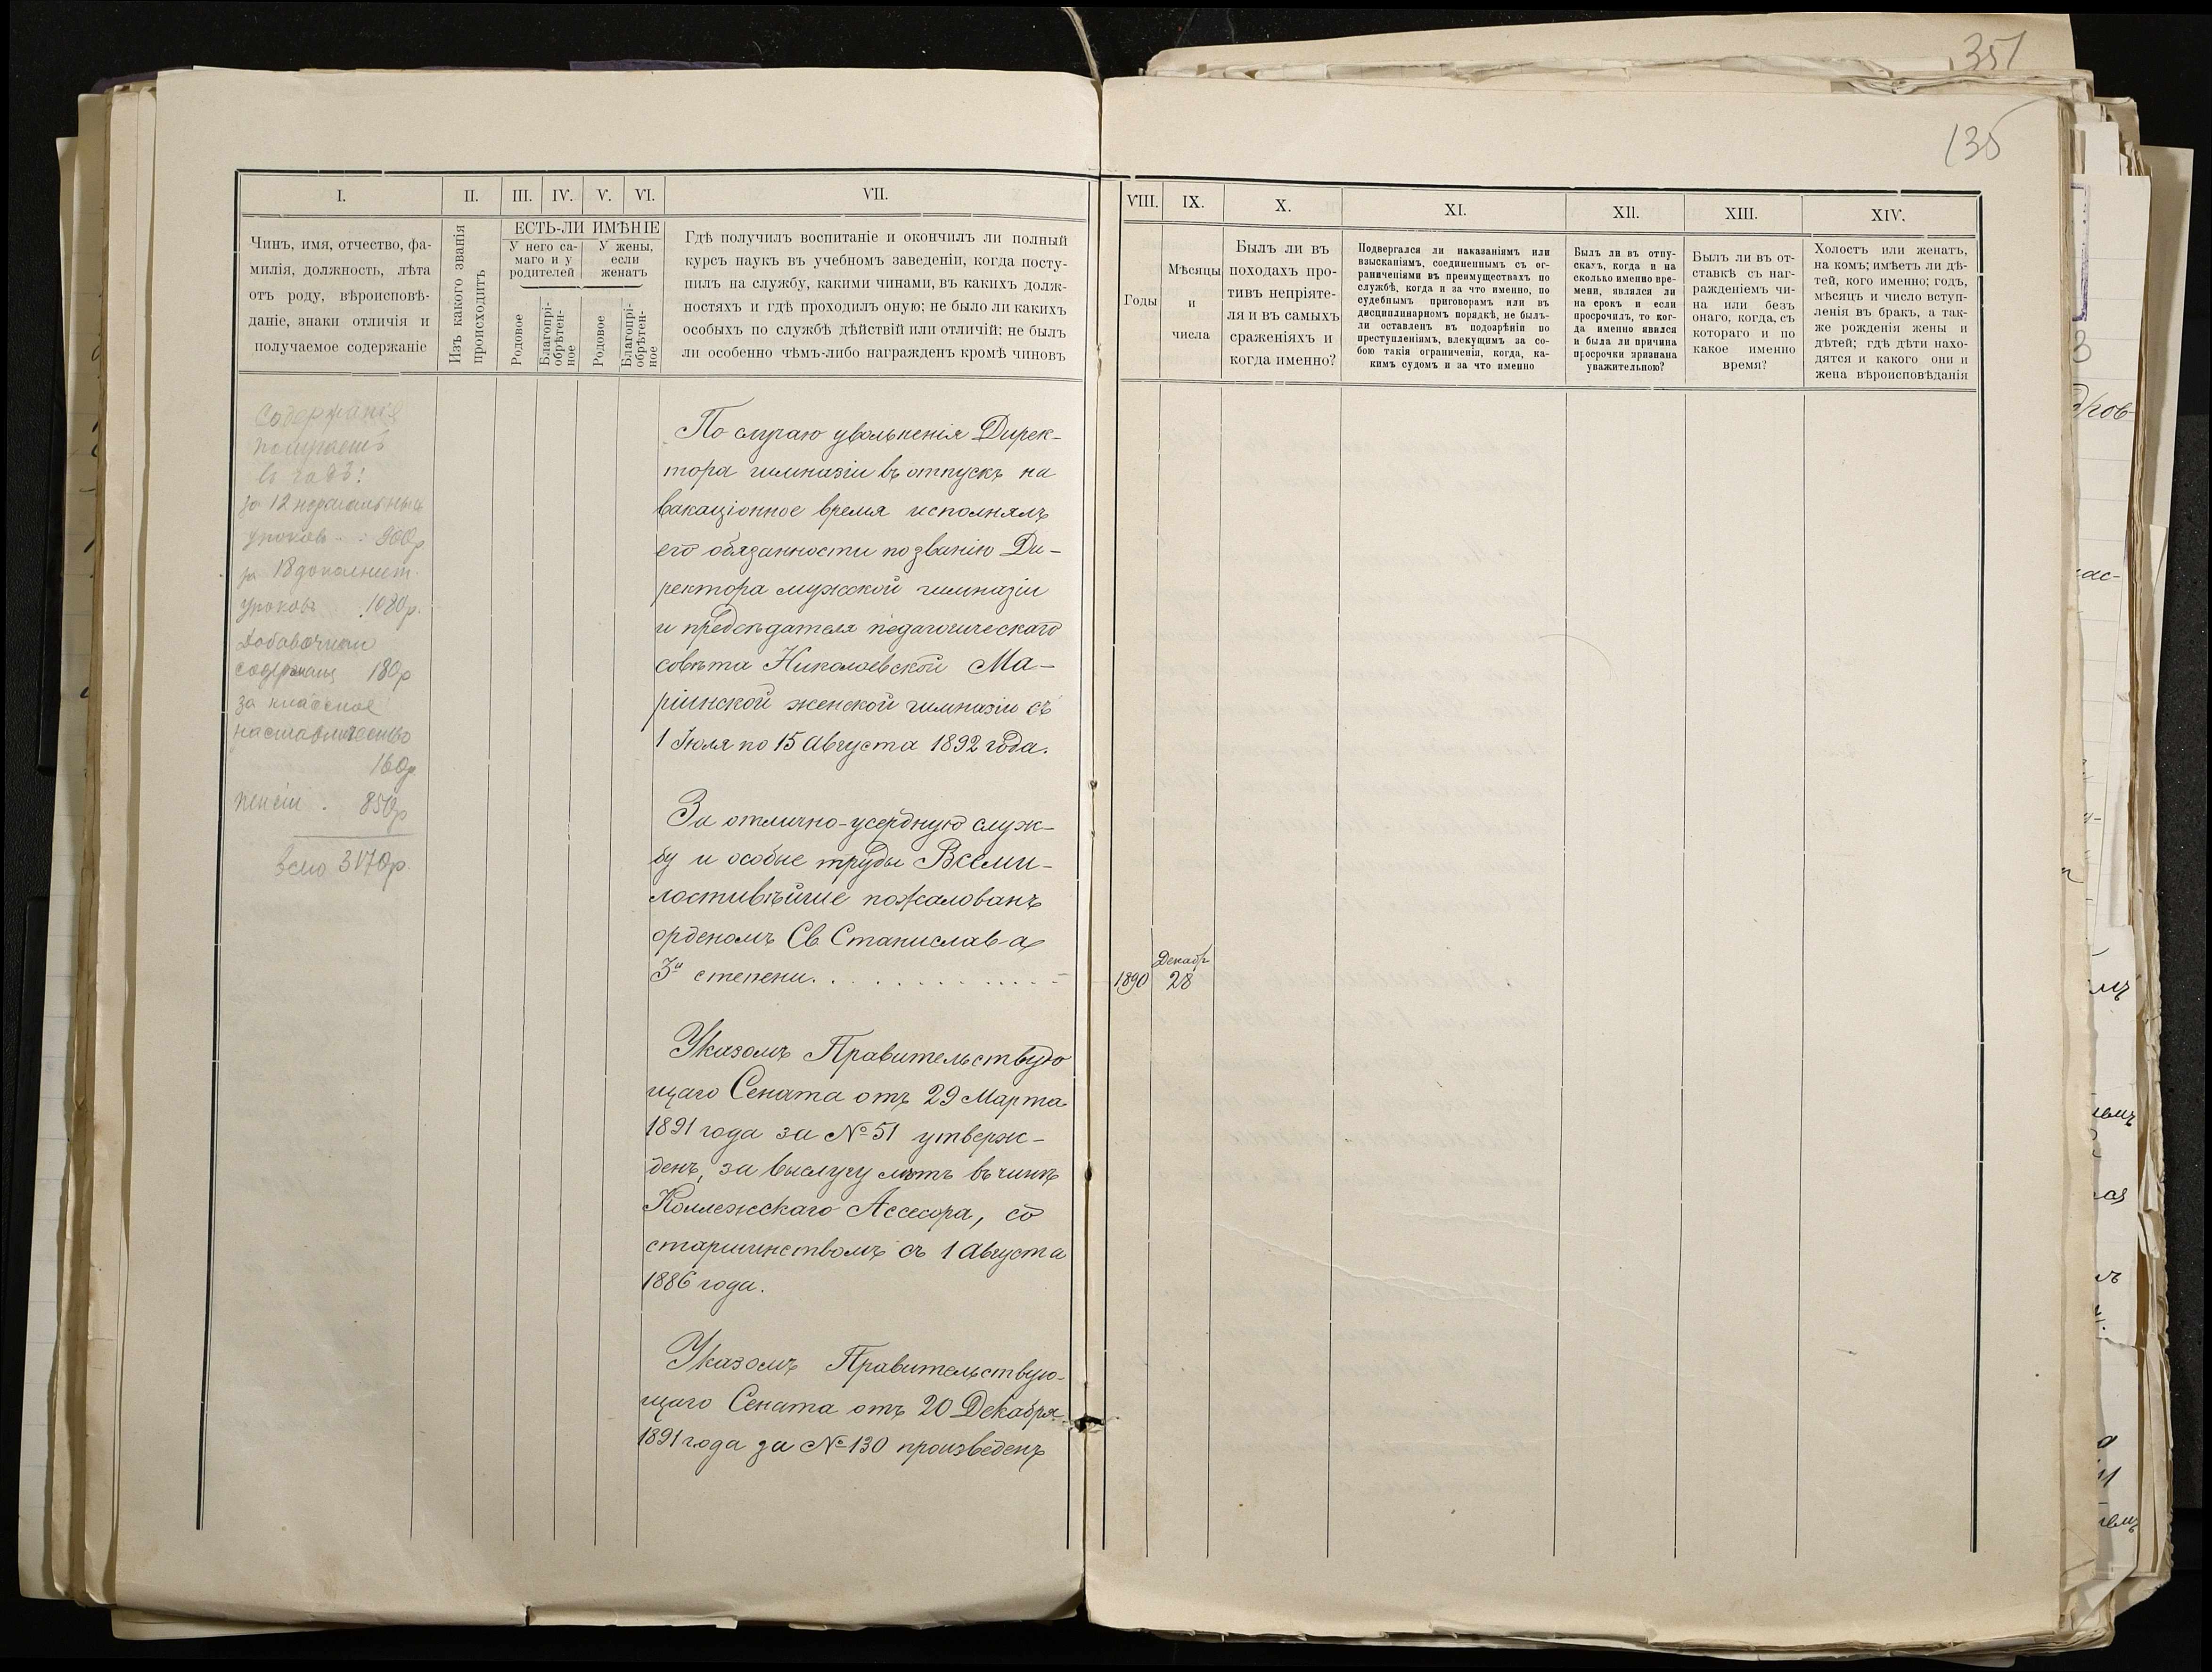 351
135
I.
II.
III.
IV.
V.
VI.
VII.
VIII.
IX.
X.
XI.
XII.
XIII.
XIV.
Чинъ, имя, отчество, фа-
милія, должность, лѣта
отъ роду, вѣроисповѣ-
даніе, знаки отличія и
получаемое содержаніе
Изъ какого званія
происходитъ
ЕСТЬ-ЛИ ИМѢНІЕ
У него са-
маго и у
родителей
У жены,
если
женатъ
Родовое
Благопрі-
обрѣтен-
ное
Родовое
Благопрі-
обрѣтен-
ное
Гдѣ получилъ воспитаніе и окончилъ ли полный
курсъ наукъ въ учебномъ заведеніи, когда посту-
пилъ на службу, какими чинами, въ какихъ долж-
ностяхъ и гдѣ проходилъ оную; не было ли какихъ
особыхъ по службѣ дѣйствій или отличій: не былъ
ли особенно чѣмъ-либо награжденъ кромѣ чиновъ
Годы
Мѣсяцы
и
числа
Былъ ли въ
походахъ про-
тивъ непріяте-
ля и въ самыхъ
сраженіяхъ и
когда именно?
Подвергался ли наказаніямъ или
взысканіямъ, соединеннымъ съ ог-
раниченіями въ преимуществахъ по
службѣ, когда и за что именно, по
судебнымъ приговорамъ или въ
дисциплинарномъ порядкѣ, не былъ-
ли оставленъ въ подозрѣніи по
преступленіямъ, влекущимъ за со-
бою такія ограниченія, когда, ка-
кимъ судомъ и за что именно
Былъ ли въ отпу-
скахъ, когда и на
сколько именно вре-
мени, являлся ли
на срокъ и если
просрочилъ, то ког-
да именно явился
и была ли причина
просрочки признана
уважительною?
Былъ ли въ от-
ставкѣ съ наг-
ражденіемъ чи-
на или безъ
онаго, когда, съ
котораго и по
какое именно
время?
Холостъ или женатъ,
на комъ; имѣетъ ли дѣ-
тей, кого именно; годъ,
мѣсяцъ и число вступ-
ленія въ бракъ, а так-
же рожденія жены и
дѣтей; гдѣ дѣти нахо-
дятся и какого они и
жена вѣроисповѣданія
Содержанiе
получаетъ
въ годъ:
за 12 нормальныхъ
уроковъ . . 900р
за 18 дополнит.
уроковъ . 1080р.
Добавочнаго
содержанія 180р
за классное
наставничество
160р
пенсіи . 850р
всего 3170р.
По случаю увольненія Дирек-
тора гимназіи въ отпускъ на
вакаціонное время исполнялъ
его обязанности по званію Ди-
ректора мужской гимназіи
и предсѣдателя педагогическаго
совѣта Николаевской Ма-
ріинской женской гимназіи съ
1 Іюля по 15 Августа 1892 года.
За отлично-усердную служ-
бу и особые труды Всеми-
лостивѣйше пожалованъ
орденомъ Св. Станислава
3й степени. . . . . . . . . . . .
1890
Декабр.
28
Указомъ Правительствую
щаго Сената отъ 29 Марта
1891 года за № 51 утверж-
денъ, за выслугу лѣтъ въ чинѣ
Коллежскаго Ассесора, со
старшинствомъ съ 1 Августа
1886 года.
Указомъ Правительствую-
щаго Сената отъ 20 Декабря
1891 года за № 130 произведенъ